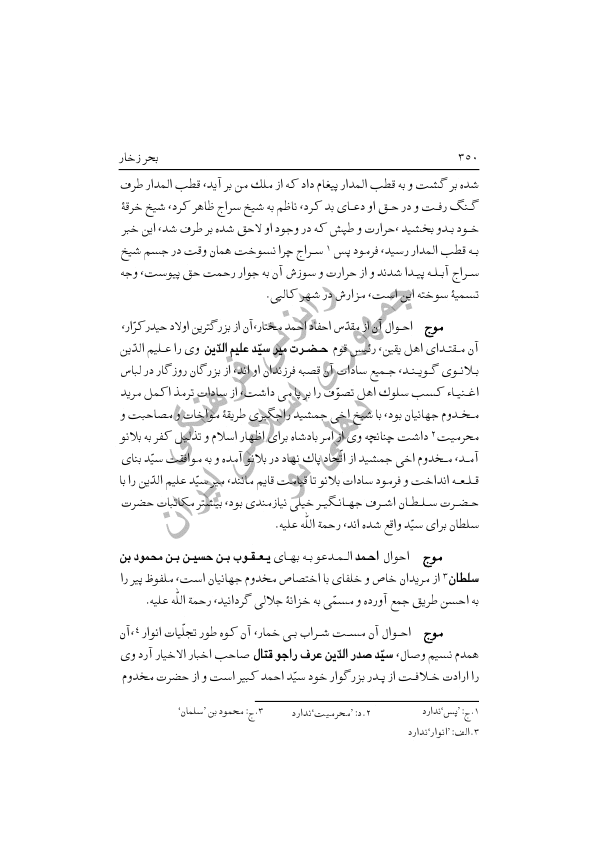 ۳۵۰ بحر زخار
شده بر گشت و به قطب المدار پیغام داد که از ملك من بر آید، قطب المدار طرف
گنگ رفت و در حق او دعای بد کرد، ناظم به شیخ سراج ظاهر کرد، شیخ خرقۀ
خود بدو بخشید، حرارت و طپش که در وجود او لاحق شده بر طرف شد، این خبر
به قطب المدار رسید، فرمود پس ۱ سراج چرا نسوخت همان وقت در جسم شیخ
سراج آبله پیدا شدند و از حرارت و سوزش آن به جوار رحمت حق پیوست، وجه
تسمیۀ سوخته این است، مزارش در شهر کالپی.
موج احوال آن از مقدّس احفاد احمد مختار، آن از بزرگترین اولاد حیدر کرّار،
آن مقتدای اهل یقین، رئیس قوم حضرت میر سیّد علیم الدّین وی را علیم الدّین
بلانوی گویند، جمیع سادات آن قصبه فرزندان او اند، از بزرگان روزگار در لباس
اغنیاء کسب سلوك اهل تصوّف را بر پا می داشت، از سادات ترمذ اکمل مرید
مخدوم جهانیان بود، با شیخ اخی جمشید راجگیری طریقۀ مواخات و مصاحبت و
محرمیت ۲ داشت چنانچه وی از امر بادشاه برای اظهار اسلام و تذلیل کفر به بلانو
آمد، مخدوم اخی جمشید از اتّحاد پاك نهاد در بلانو آمده و به موافقت سیّد بنای
قلعه انداخت و فرمود سادات بلانو تا قیامت قایم مانند، میر سیّد علیم الدّین را با
حضرت سلطان اشرف جهانگیر خیلی نیازمندی بود، بیشتر مکاتبات حضرت
سلطان برای سیّد واقع شده اند، رحمة الله علیه.
موج احوال احمد المدعو به بهای یعقوب بن حسین بن محمود بن
سلطان ۳ از مریدان خاص و خلفای با اختصاص مخدوم جهانیان است، ملفوظ پیر را
به احسن طریق جمع آورده و مسمّی به خزانۀ جلالی گردانید، رحمة الله علیه.
موج احوال آن مست شراب بی خمار، آن کوه طور تجلّیات انوار ٤، آن
همدم نسیم وصال، سیّد صدر الدّین عرف راجو قتال صاحب اخبار الاخیار آرد وی
را ارادت خلافت از پدر بزرگوار خود سیّد احمد کبیر است و از حضرت مخدوم
۱. ج: ’پس‘ ندارد ۲. د: ’محرمیت‘ ندارد ۳. ج: محمود بن ’سلمان‘
۳. الف: ’انوار‘ ندارد